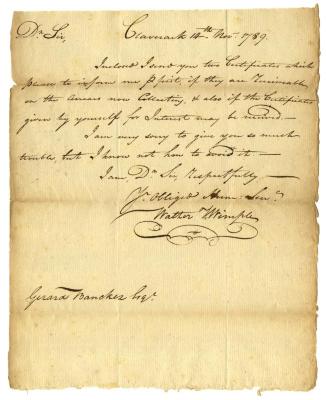 Dr Sir, Claverack 14th Nov. 1789.
Inclosed I send you two Certificates which
please to inform me if they are Receivable
on the Arrears now Collecting, & also if the Certificates
given by yourself for Interest may be received. —
I am very sorry to give you so much
trouble, but I know not how to avoid it —
I am, Dr Sir, Respectfully —
Yr Obliged Hum. Servt.
Walther
Gerard Bancker Esqr.